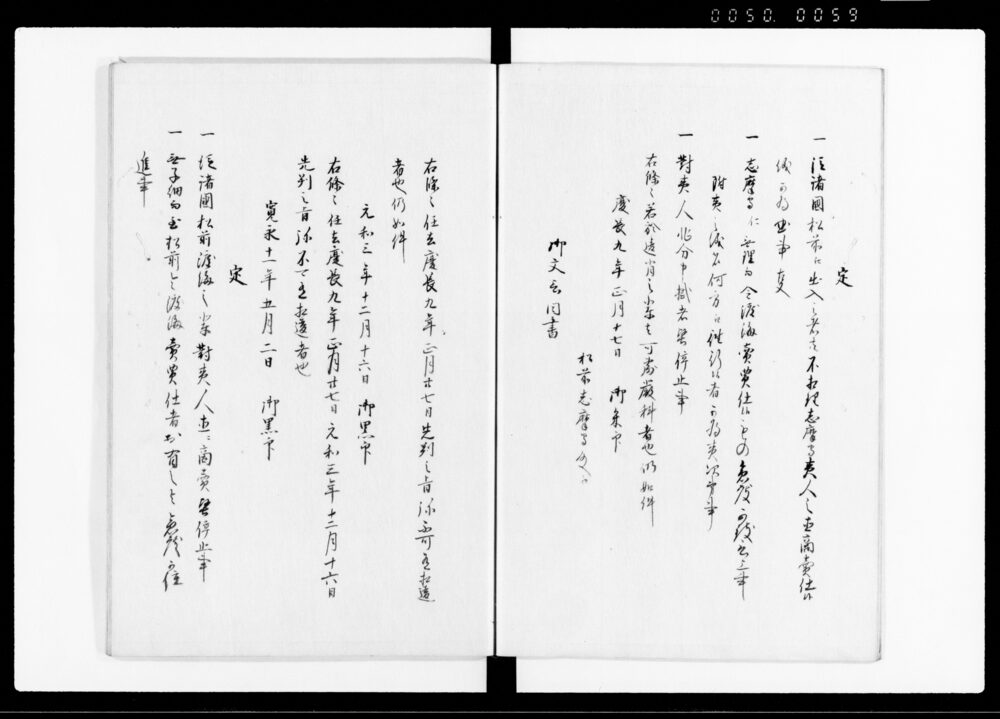 0050. 0059
定
一 從諸國松前江出入之者共不相理志摩守夷人与直商賣仕候
儀可為曲事事
一 志摩守仁無理而令渡海賣買仕候もの急度可致言上事
附夷之儀者何方江往行候者可為夷次第事
一 對夷人非分申掛者堅停止事
右條々若於違背之輩者可處嚴科者也仍如件
慶長九年正月廿七日 御朱印
松前志摩守殿
御文言同書
右條々任去慶長九年正月廿七日先判之旨弥不可有相違
者也仍如件
元和三年十二月十六日 御黒印
右條々任去慶長九年正月廿七日元和三年十二月十六日
先判之旨弥不可有相違者也
寛永十一年五月二日 御黒印
定
一 從諸國松前渡海之輩對夷人直ニ商賣堅停止事
一 無子細而至松前令渡海賣買仕者於有之者急度可注
進事